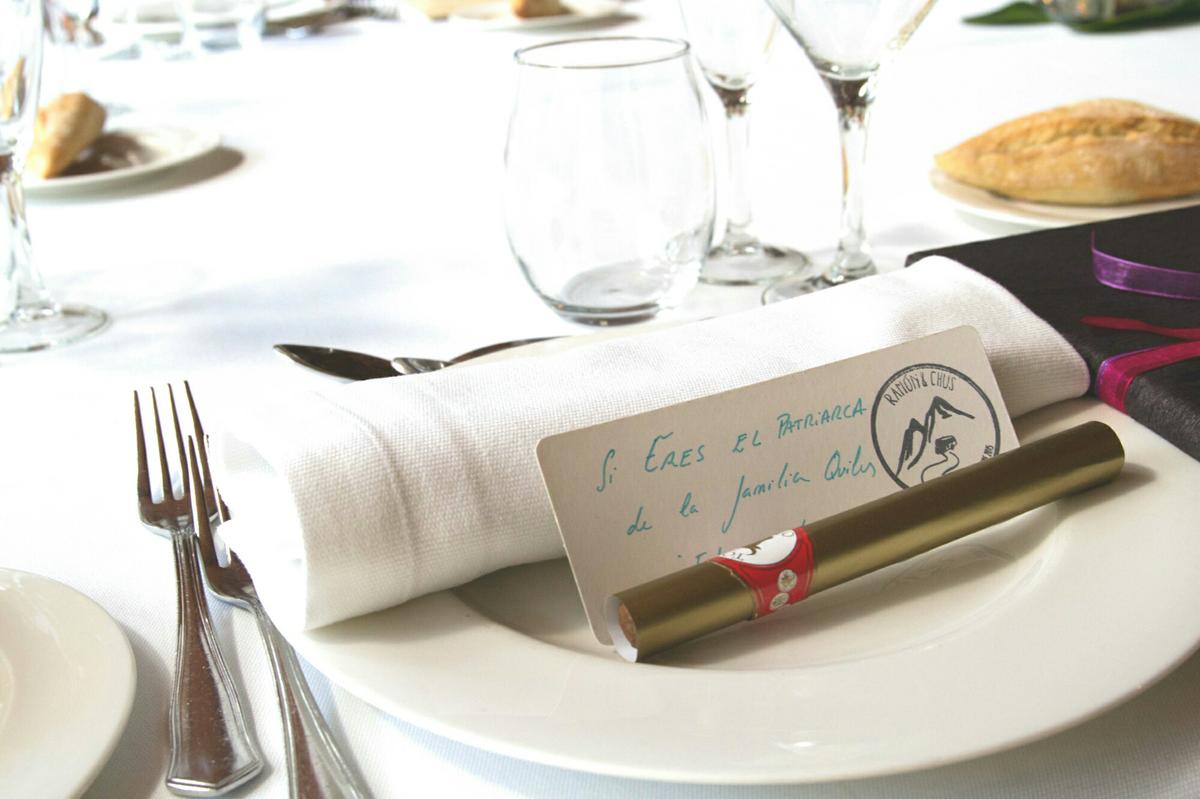 Si ERES EL PATRIARCA
de la familia Quiles
RAMÓN & CHUS